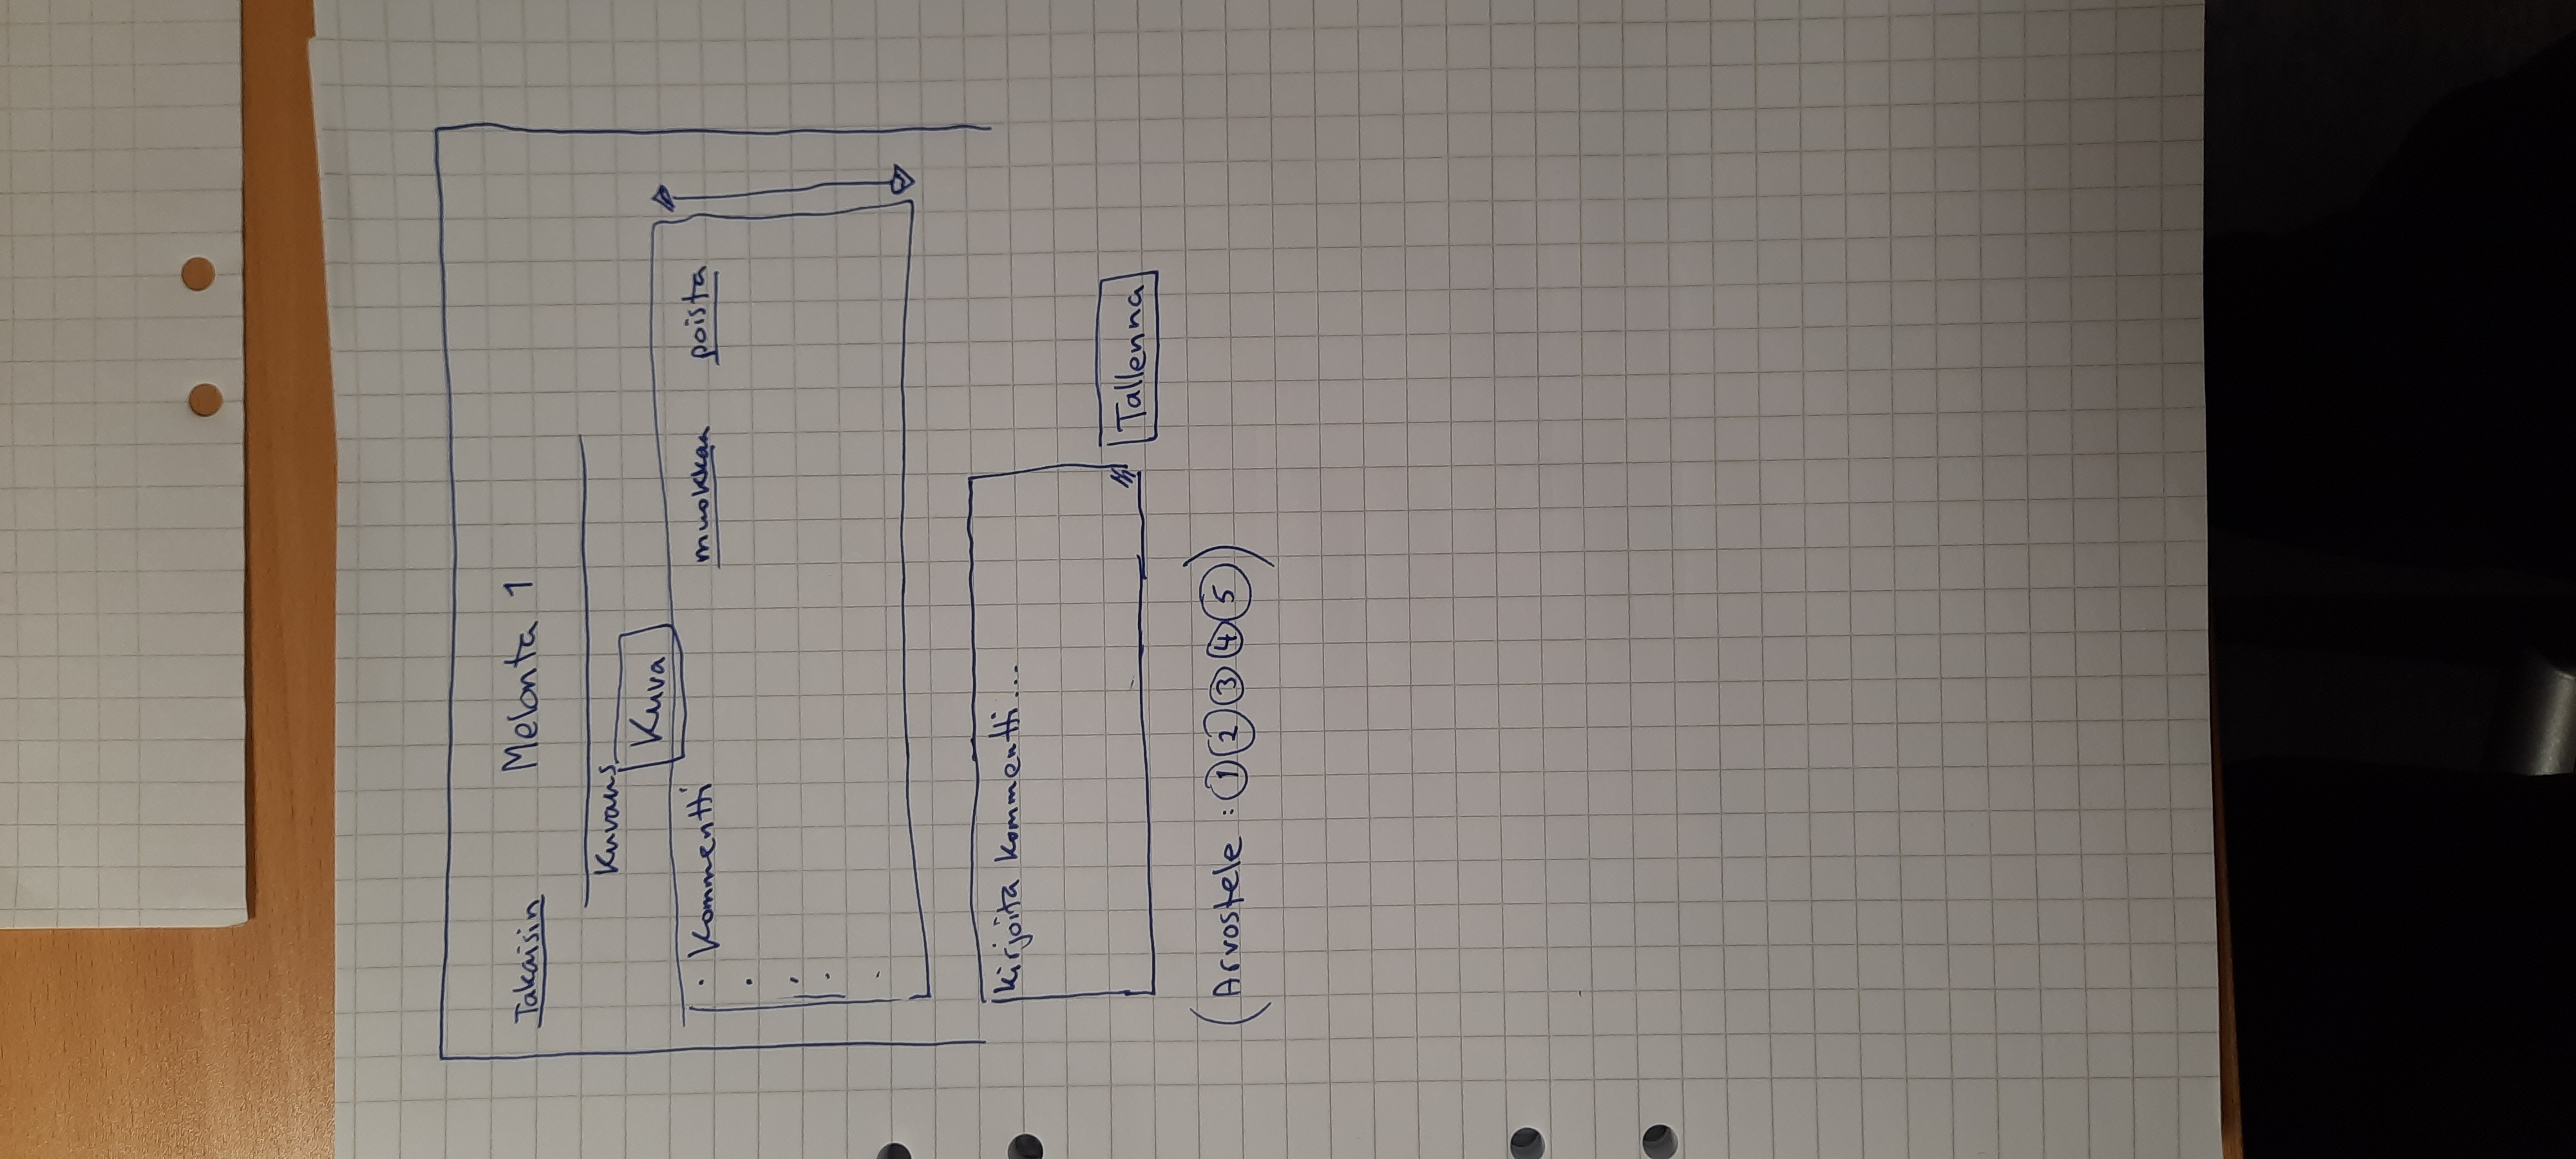 Takaisin Melonta 1
Kuvaus
Kuva
· Kommentti muokkaa poista
·
·
·
·
Kirjoita kommentti...
Tallenna
(Arvostele : 1 2 3 4 5)